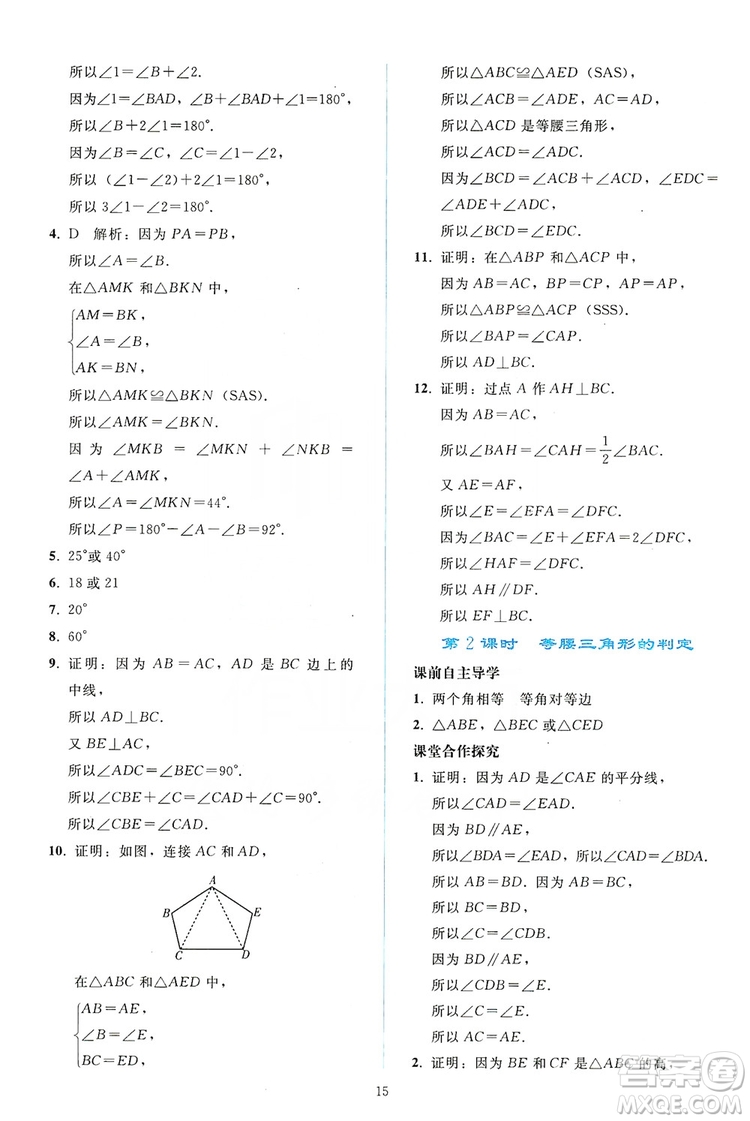 所以∠1=∠B+∠2.
因为∠1=∠BAD，∠B+∠BAD+∠1=180°，
所以∠B+2∠1=180°.
因为∠B=∠C，∠C=∠1-∠2，
所以（∠1-∠2）+2∠1=180°.
所以 3∠1-∠2=180°.
4. D 解析：因为 PA=PB，
所以∠A=∠B.
在△AMK 和△BKN 中，
AM=BK，
∠A=∠B，
AK=BN，
所以△AMK≌△BKN (SAS).
所以∠AMK=∠BKN.
因为 ∠MKB = ∠MKN + ∠NKB =
∠A+∠AMK，
所以∠A=∠MKN=44°.
所以∠P=180°-∠A-∠B=92°.
5. 25°或 40°
6. 18 或 21
7. 20°
8. 60°
9. 证明：因为 AB=AC，AD 是 BC 边上的
中线，
所以 AD⊥BC.
又 BE⊥AC，
所以∠ADC=∠BEC=90°.
所以∠CBE+∠C=∠CAD+∠C=90°.
所以∠CBE=∠CAD.
10. 证明：如图，连接 AC 和 AD，
A
B
E
C
D
在△ABC 和△AED 中，
AB=AE，
∠B=∠E，
BC=ED，
所以△ABC≌△AED (SAS)，
所以∠ACB=∠ADE，AC=AD.
所以△ACD 是等腰三角形，
所以∠ACD=∠ADC.
因为∠BCD=∠ACB+∠ACD，∠EDC=
∠ADE+∠ADC，
所以∠BCD=∠EDC.
11. 证明：在△ABP 和△ACP 中，
因为 AB=AC，BP=CP，AP=AP，
所以△ABP≌△ACP (SSS).
所以∠BAP=∠CAP.
所以 AD⊥BC.
12. 证明：过点 A 作 AH⊥BC.
因为 AB=AC，
所以∠BAH=∠CAH=1/2∠BAC.
又 AE=AF，
所以∠E=∠EFA=∠DFC.
因为∠BAC=∠E+∠EFA=2∠DFC，
所以∠HAF=∠DFC.
所以 AH∥DF.
所以 EF⊥BC.
第 2 课时 等腰三角形的判定
课前自主导学
1. 两个角相等 等角对等边
2. △ABE，△BEC 或△CED
课堂合作探究
1. 证明：因为 AD 是∠CAE 的平分线，
所以∠CAD=∠EAD.
因为 BD∥AE，
所以∠BDA=∠EAD，所以∠CAD=∠BDA.
所以 AB=BD. 因为 AB=BC，
所以 BC=BD.
所以∠C=∠CDB.
因为 BD∥AE，
所以∠CDB=∠E.
所以∠C=∠E.
所以 AC=AE.
2. 证明：因为 BE 和 CF 是△ABC 的高，
15
答案圈
MXQE.COM